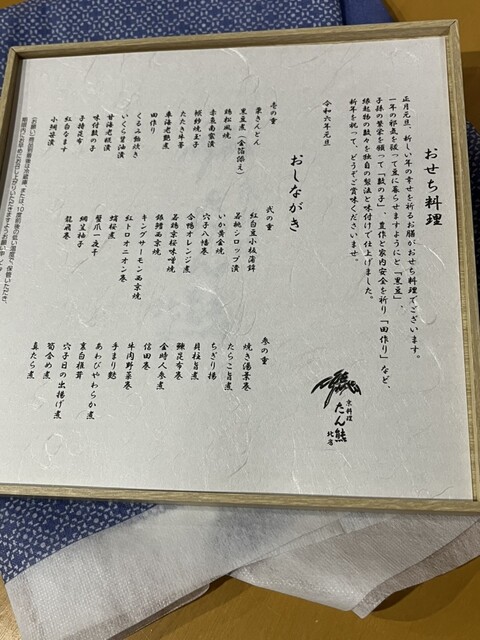 おせち料理
正月元旦、新しい年の幸せを祈るお膳がおせち料理でございます。
一年の邪気を祓って豆に暮らせますようにと「黒豆」、
子孫の繁栄を願って「数の子」、豊作と家内安全を祈り「田作り」など、
縁起物の数々を独自の製法と味付けで仕上げました。
新年を祝って、どうぞご賞味くださいませ。
令和六年元旦
京料理
たん熊
北店
おしながき
壱の重
栗きんとん
黒豆煮(金箔添え)
鶏松風焼
赤魚南蛮漬
傾斜焼玉子
たたき牛蒡
車海老艶煮
田作り
くるみ飴炊き
いくら醤油漬
甘海老糀漬
味付数の子
子持昆布
紅白なます
小鯛笹漬
弐の重
紅白重小板蒲鉾
若桃シロップ漬
いか黄金焼
穴子八幡巻
合鴨オレンジ煮
若鶏京桜味噌焼
銀鱈西京焼
キングサーモン西京焼
紅トロオニオン巻
蛸桜煮
蟹爪一夜干
網笠柚子
龍飛巻
参の重
焼き湯葉巻
たらこ旨煮
ちぎり揚
貝柱旨煮
鰊昆布巻
金時人参煮
信田巻
牛肉野菜巻
手まり麩
あわびやわらか煮
裏白椎茸
穴子日の出揚げ煮
筍含め煮
真たら煮